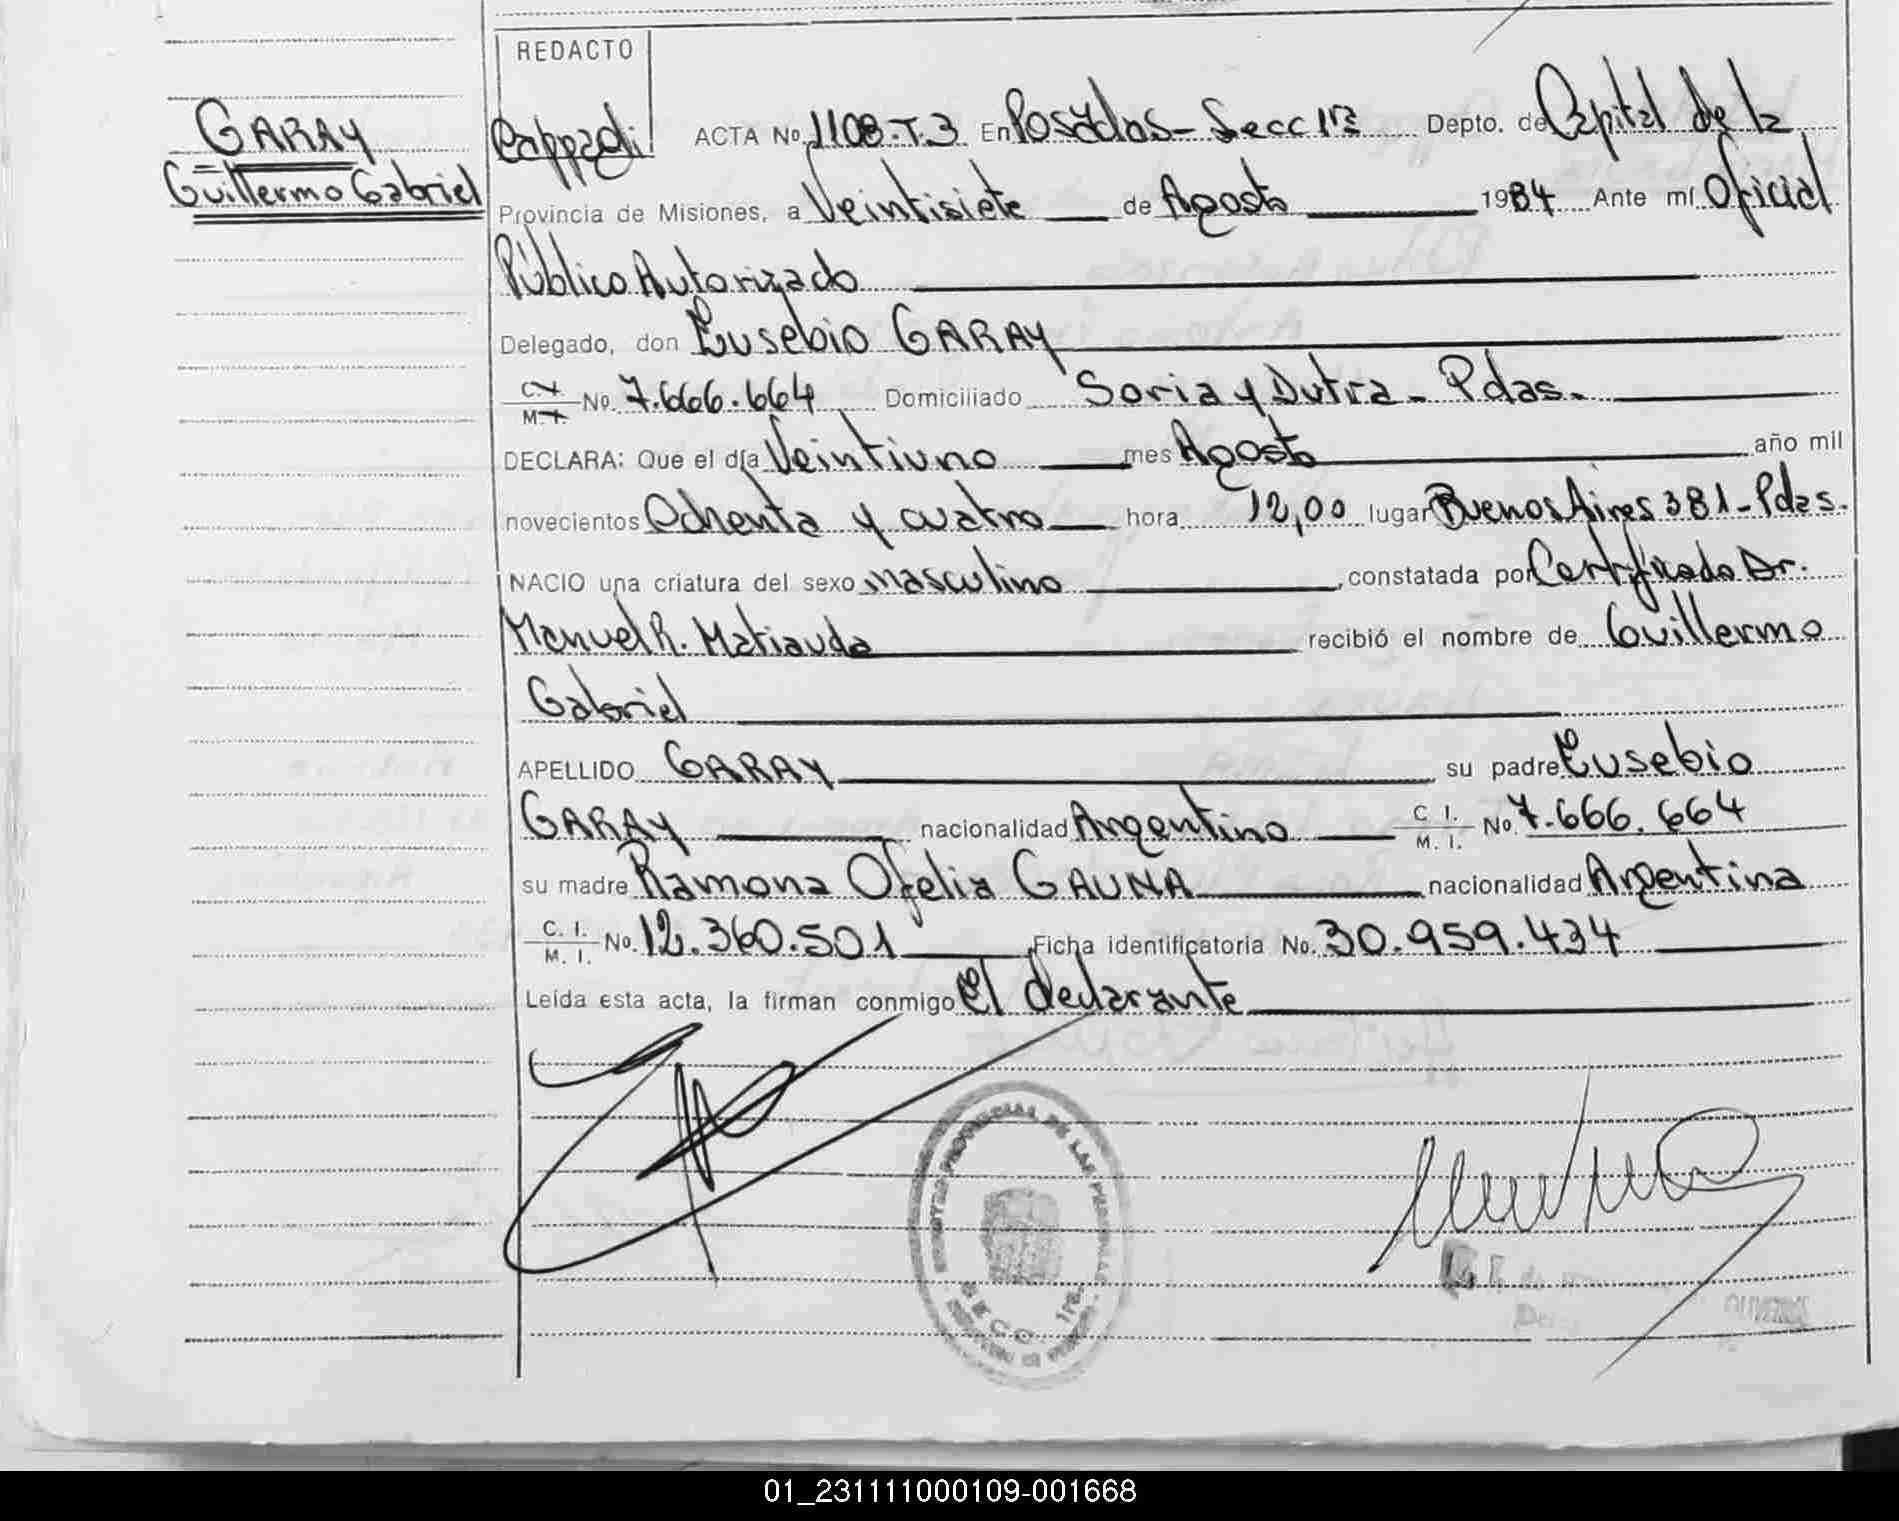 REDACTO
GARAY
Guillermo Gabriel
Cappadi ACTA No. 1108.T.3 En Posadas - Secc 1ra Depto. de Capital de la
Provincia de Misiones, a Veintisiete de Agosto 1984 Ante mí Oficial
Público Autorizado
Delegado, don Eusebio GARAY
C.I. M.I. No. 7.666.664 Domiciliado Soria y Dutra - Pdas.
DECLARA: Que el día Veintiuno mes Agosto año mil
novecientos Ochenta y cuatro hora 12,00 lugar Buenos Aires 381 - Pdas.
NACIO una criatura del sexo masculino, constatada por Certificado Dr.
Manuel R. Matiauda recibió el nombre de Guillermo
Gabriel
APELLIDO GARAY su padre Eusebio
GARAY nacionalidad Argentino C. I. M. I. No. 7.666.664
su madre Ramona Ofelia GAUNA nacionalidad Argentina
C. I. M. I. No. 12.360.501 Ficha identificatoria No. 30.959.434
Leída esta acta, la firman conmigo el declarante
01_231111000109-001668